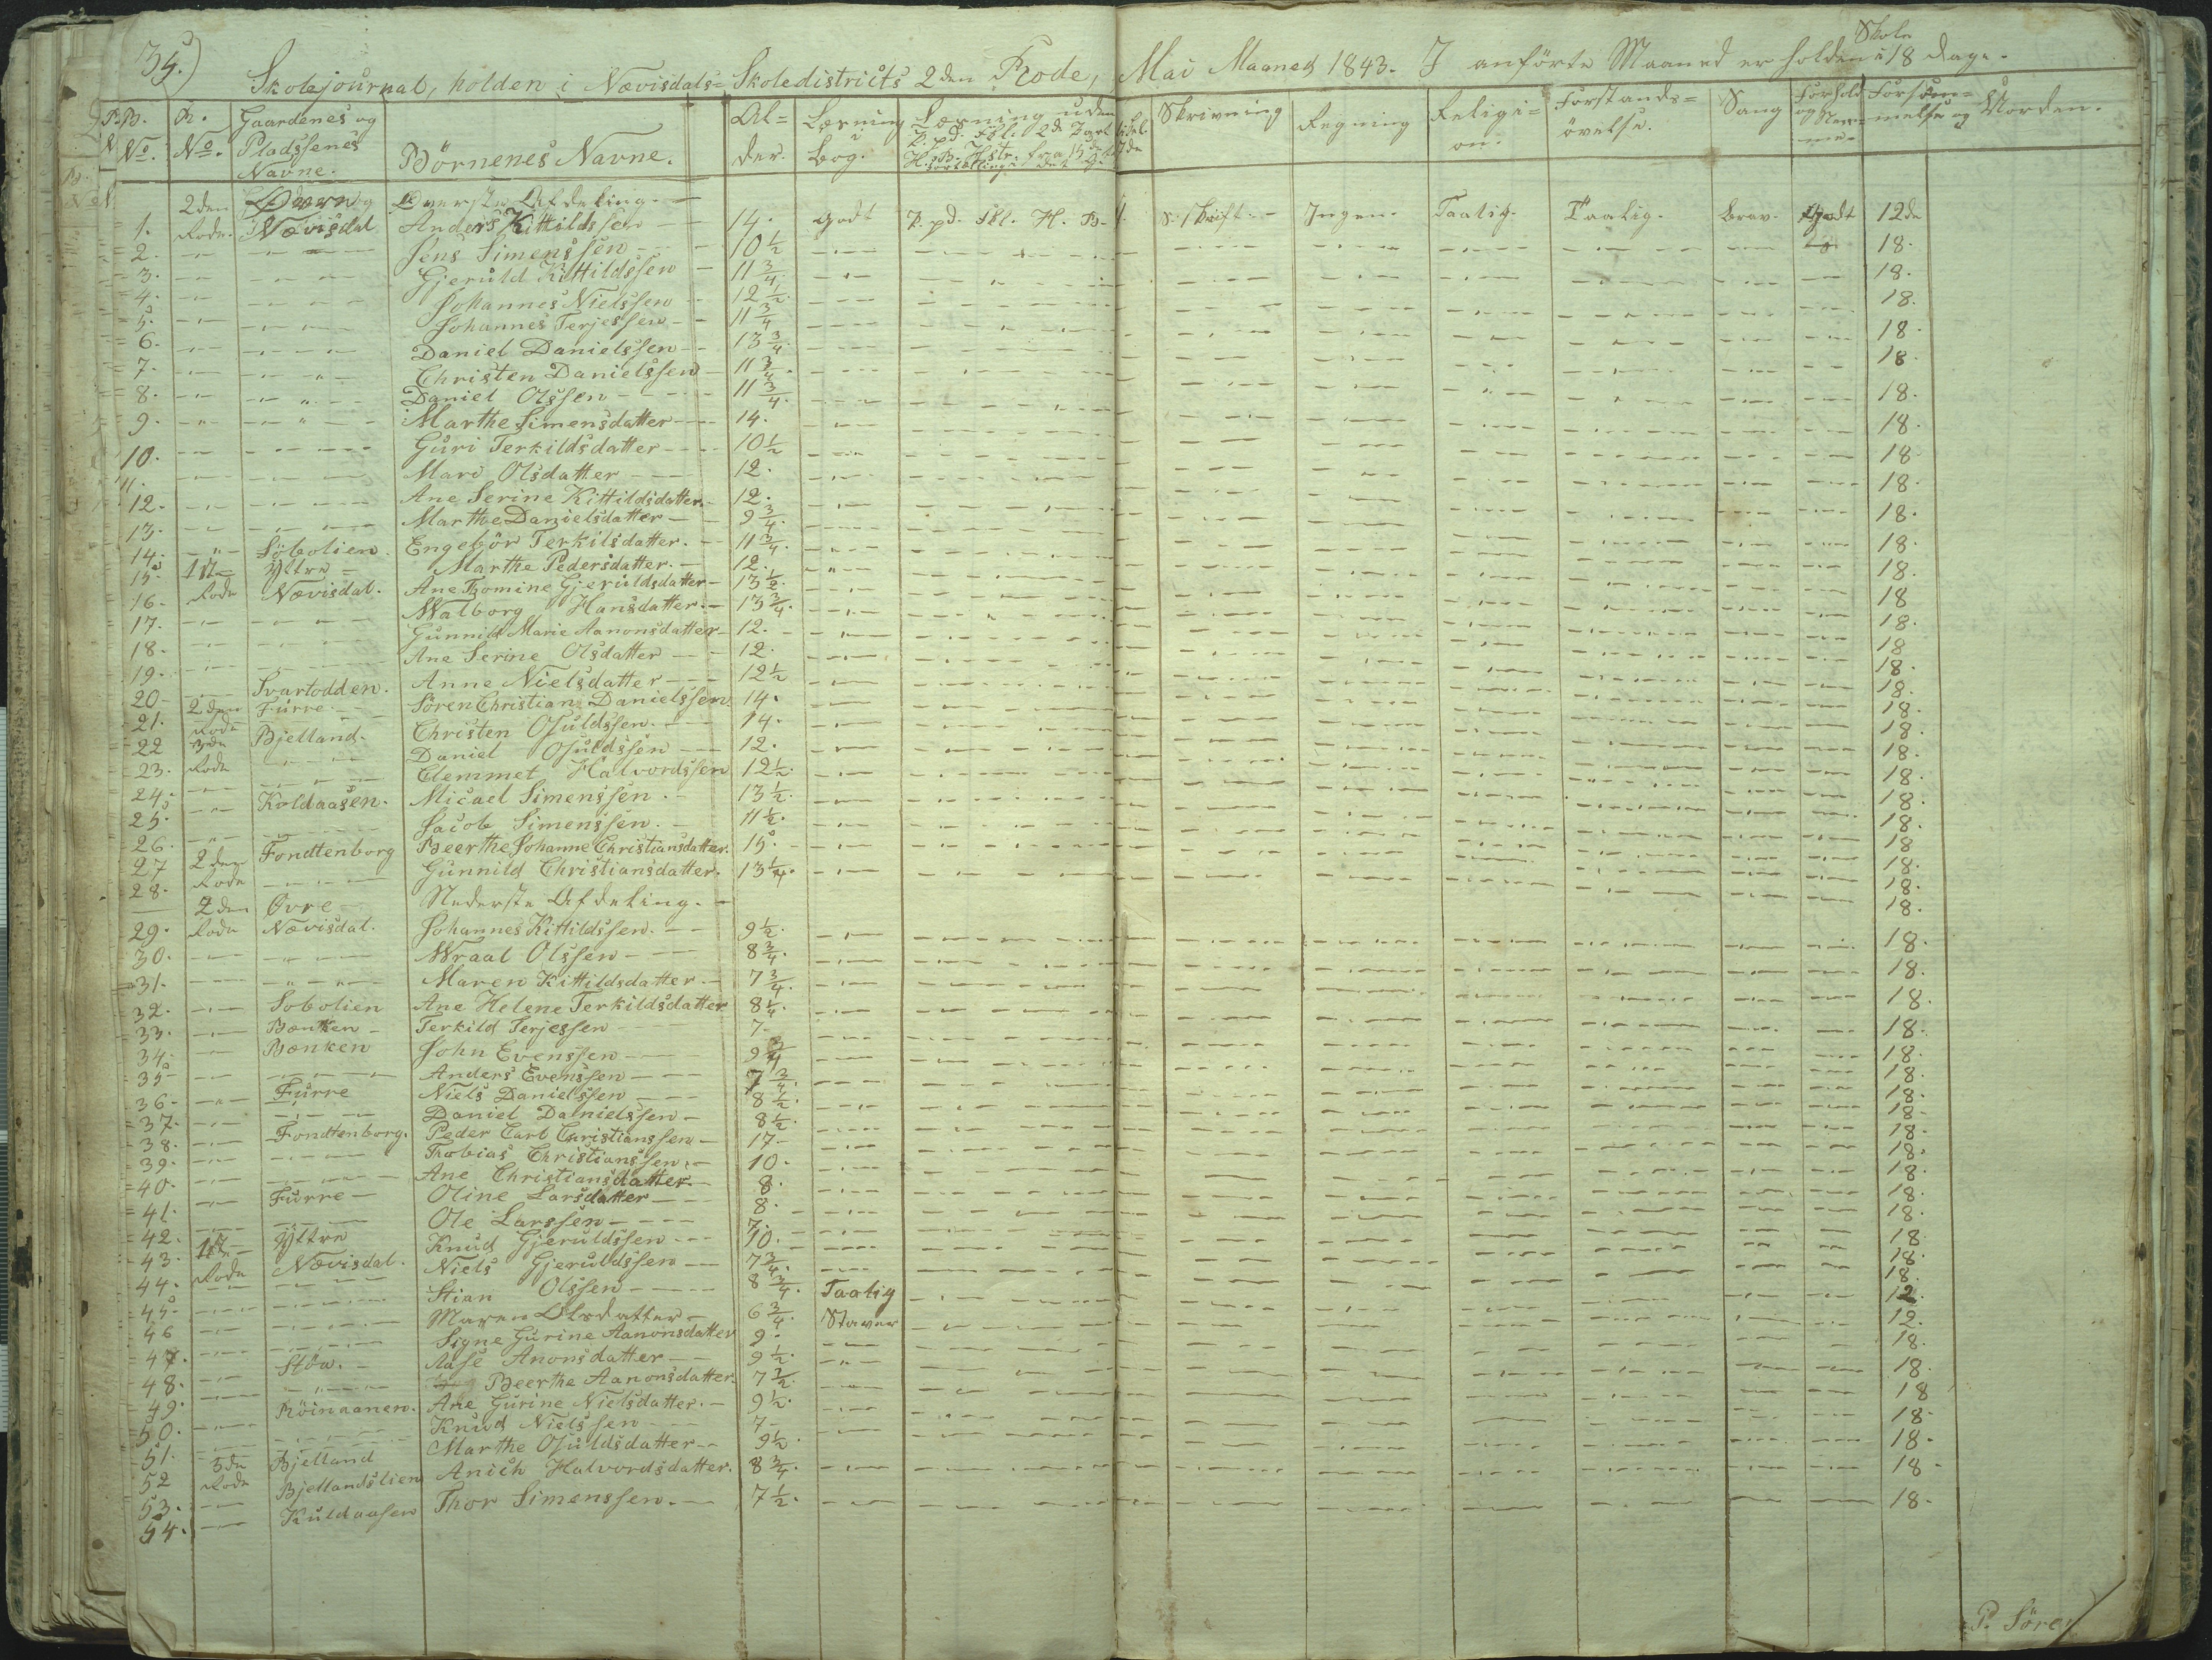 35.)
Skolejournal, holden i Nævisdals- Skoledistricts 2den Rode, Mai Maaned 1843. I anförte Maaned er Skole holden i 18 Dage.
B. No. R. No. Gaardenes og Pladssenes Navne. Börnenes Navne. Alder. Læsning i Bog. Læsning uden Skrivning Regning Religion. Forstands-övelse. Sang Forhold og Forsömmelse og Orden.
2den Övern og Överste Afdeling.
1. Rode. Nævisdal Anders Kittildssen 14. godt P. pd. Fkl. H. B. S. Skrift. Ingen. Taalig. Taalig. brav. godt 12de
2. Jens Simenssen 10 1/2 18.
3. Gjeruld Kittildssen 11 3/4 18.
4. Johannes Nielssen 12 1/2 18.
5. Johannes Terjessen 11 3/4 18.
6. Daniel Danielssen 13 3/4 18.
7. Christen Danielssen 11 3/4 18.
8. Daniel Olssen 11 3/4. 18.
9. Marthe Simensdatter 14. 18
10. Guri Terkildsdatter 10 1/2 18.
11. Mari Olsdatter 12. 18.
12. Ane Serine Kittildsdatter 12. 18.
13. Marthe Danielsdatter 9 3/4. 18.
14. Söbolien. Engebör Terkilsdatter. 11 3/4. 18
15. 1ste Yttre Marthe Pedersdatter. 12. 18.
16. Rode Nævisdal. Ane Thomine Gjeruldsdatter 13 1/2. 18
17. Walborg Hansdatter 13 3/4. 18.
18. Gunnild Marie Aanonsdatter 12. 18.
19. Ane Serine Olsdatter 12. 18.
20 Svartodden. Anne Nielsdatter 12 1/2 18.
21. 2den Rode Furre. Sören Christian Danielssen 14. 18.
22 3de Bjelland. Christen Osuldssen. 14. 18.
23. Rode Daniel Osuldssen 12. 18.
24. Clemmet Halvordssen 12 1/2. 18.
25. Koldaasen. Micael Simenssen. 13 1/2. 18
26. Jacob Simenssen. 11 1/2. 18.
27 2den Fondtenborg Beerthe Johanne Christiansdatter. 15. 18.
28. Rode Gunnild Christiansdatter. 13 1/4. 18.
2den Övre Nederste Afdeling.
29. Rode Nævisdal. Johannes Kittildssen. 9 1/2. 18.
30. Wraal Olssen 8 3/4. 18.
31. Maren Kittildsdatter 7 3/4. 18.
32. Sobolien Ane Helene Terkildsdatter 8 1/4. 18.
33. Bænken Terkild Terjessen 7 18.
34. Bænken John Evenssen 9 3/4 18.
35 Anders Evenssen 7 3/4. 18.
36 Furre Niels Danielssen 8 1/2. 18
37. Daniel Danielssen 8 1/2. 18.
38. Fondtenborg. Peder Carl Christianssen 17 18.
39. Thobias Christianssen. 10. 18.
40. Ane Christiansdatter. 8. 18.
41. Furre Oline Larsdatter 8. 18.
42. Ole Larssen 7. 18
43. 1ste Yttre Knud Gjeruldssen 10. 18.
44. Rode Nævisdal. Niels Gjeruldssen 7 3/4. 18.
45. Stian Olssen 8 3/4. Taalig 12.
46 Maren Olsdatter 6 3/4. Staver 12.
47. Signe Gurine Aanonsdatter 9. 18.
48. Stöa. Aase Anonsdatter 9 1/2. 18.
49. Beerthe Aanonsdatter. 7 1/2. 18
50. Röinaanen. Ane Gurine Nielsdatter. 9 1/2. 18.
51. Knud Nielssen 7 18.
52 3de Bjelland Marthe Osuldsdatter 9 1/2. 18
53. Rode Bjellandslien Anich Halvordsdatter. 8 3/4. 18.
54. Kuldaasen Thor Simenssen. 7 1/2. 18.
P. Sören